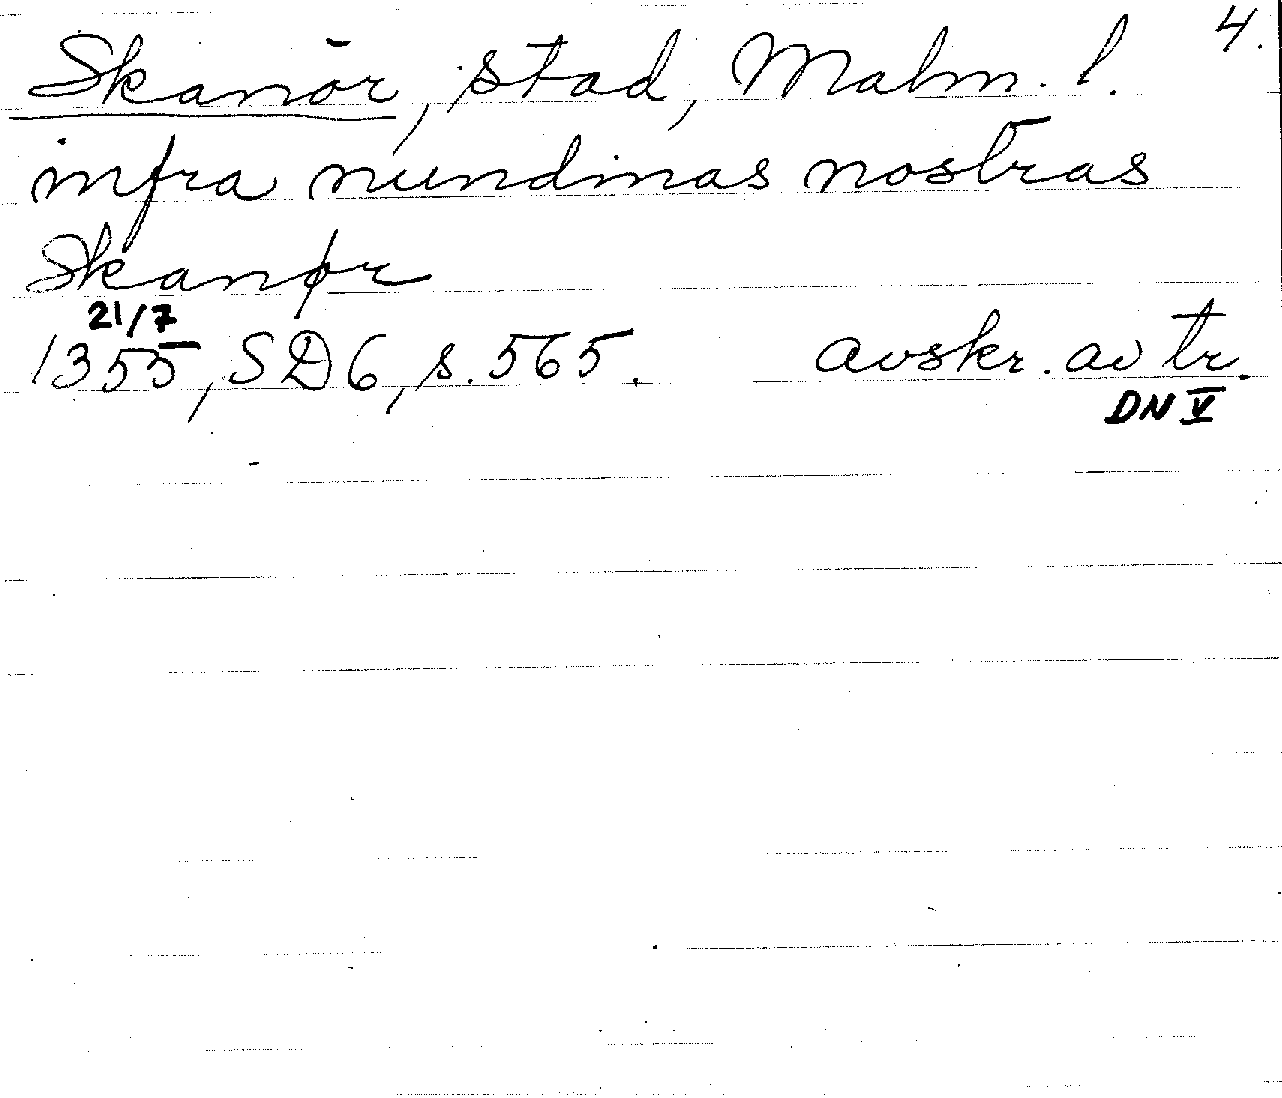 4.
Skanör, stad, Malm. l.
infra nundinas nostras
Skanør
21/7
1355, SD6, s. 565. avskr. av tr.
DN V